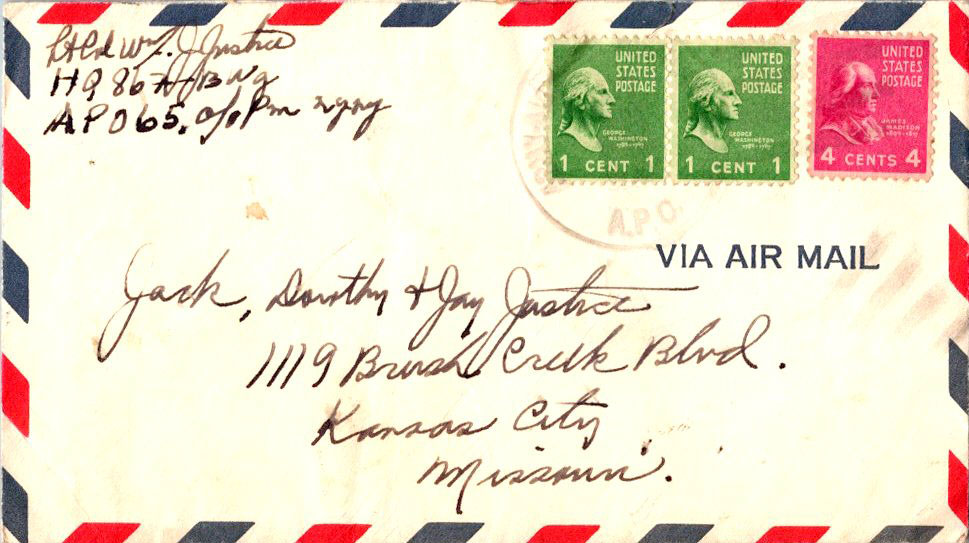 Lt Col Wm. J Justice
HQ 86th
APO 65, c/o Pm ny ny
UNITED
STATES
POSTAGE
GEORGE
WASHINGTON
1789-1797
1 CENT 1
UNITED
STATES
POSTAGE
GEORGE
WASHINGTON
1789-1797
1 CENT 1
UNITED
STATES
POSTAGE
JAMES
MADISON
1809-1817
4 CENTS 4
A.P.O.
VIA AIR MAIL
Jack, Dorothy & Jay Justice
1119 Brush Creek Blvd.
Kansas City
Missouri.